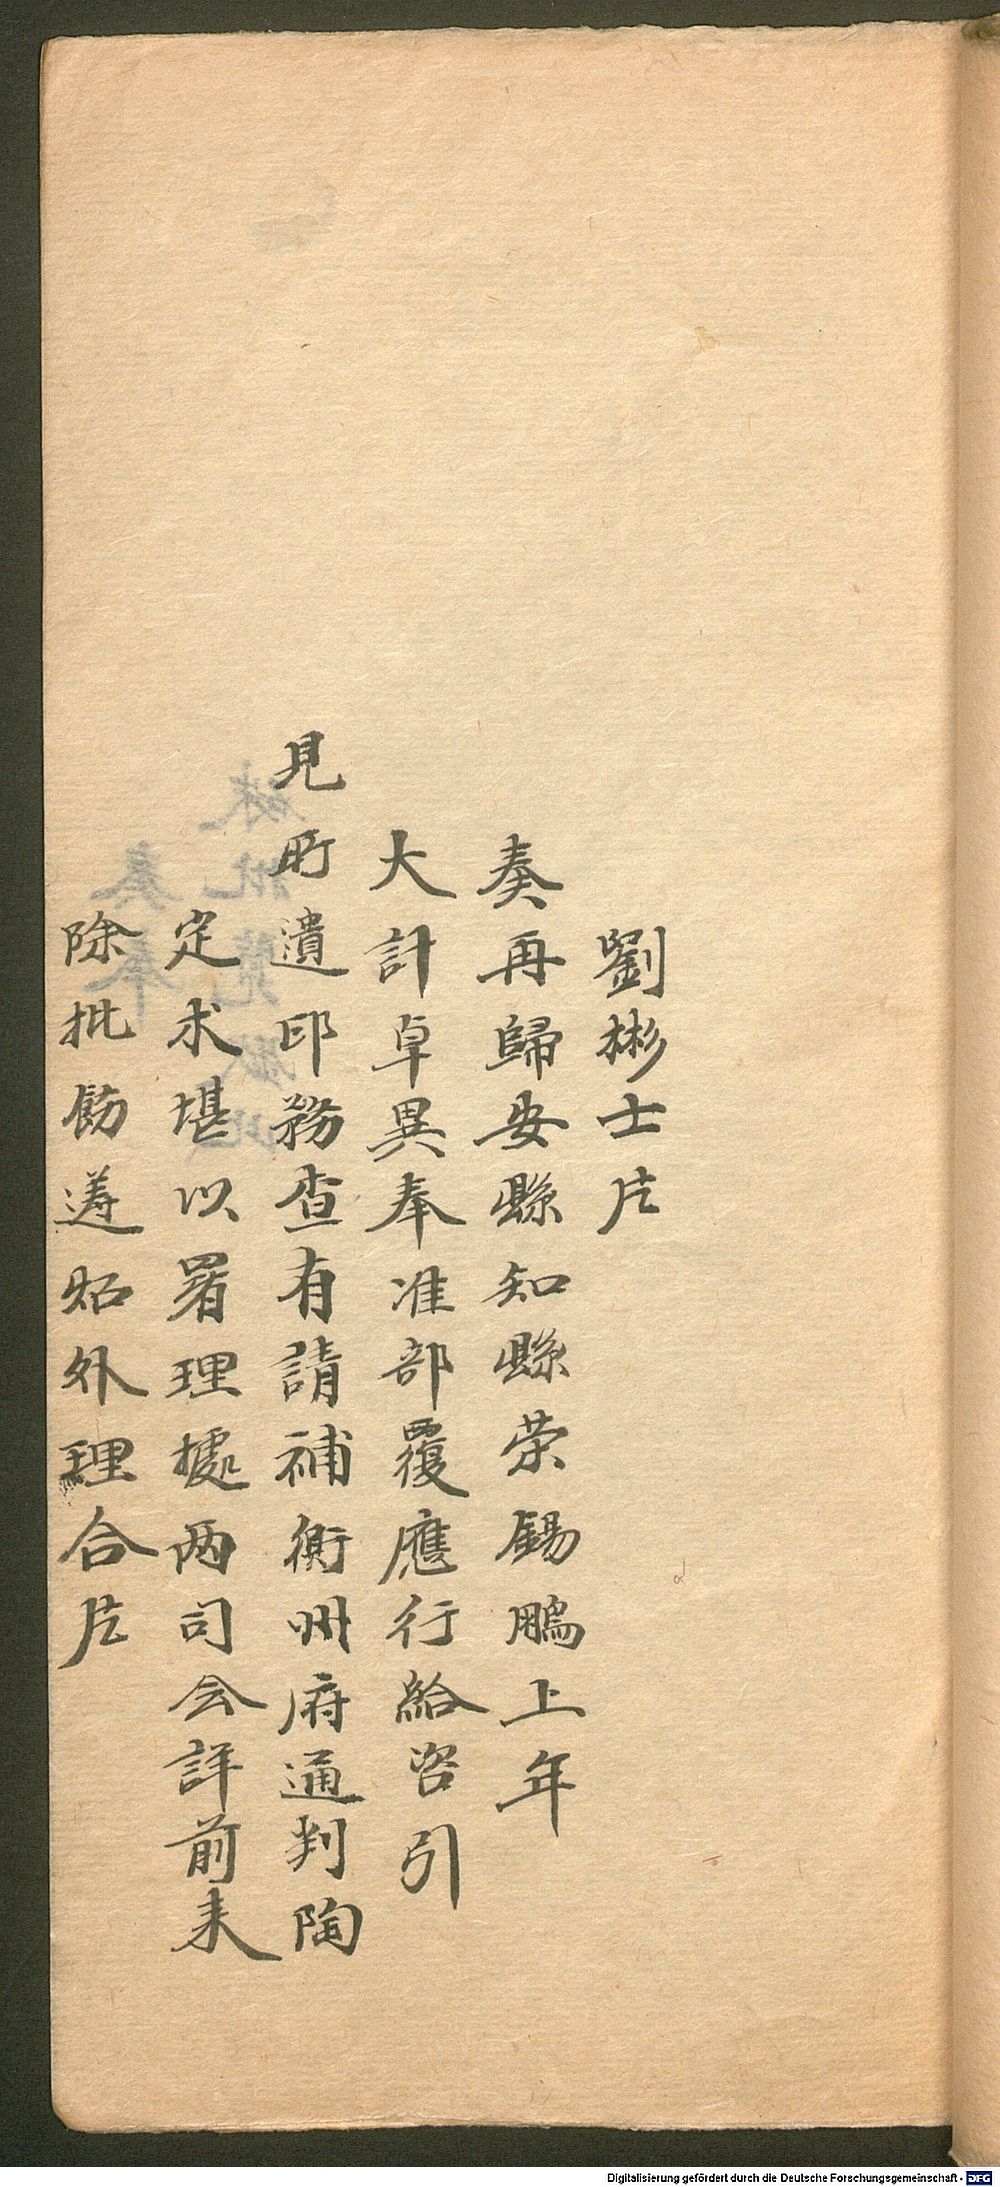 劉彬士片
奏再歸安縣知縣荣錫鵬上年
大計卓異奉准部覆應行給咨引
見所遺印務查有請補衡州府通判陶
定求堪以署理據两司会詳前来
除批飭遵照外理合片
Digitalisierung gefördert durch die Deutsche Forschungsgemeinschaft - DFG